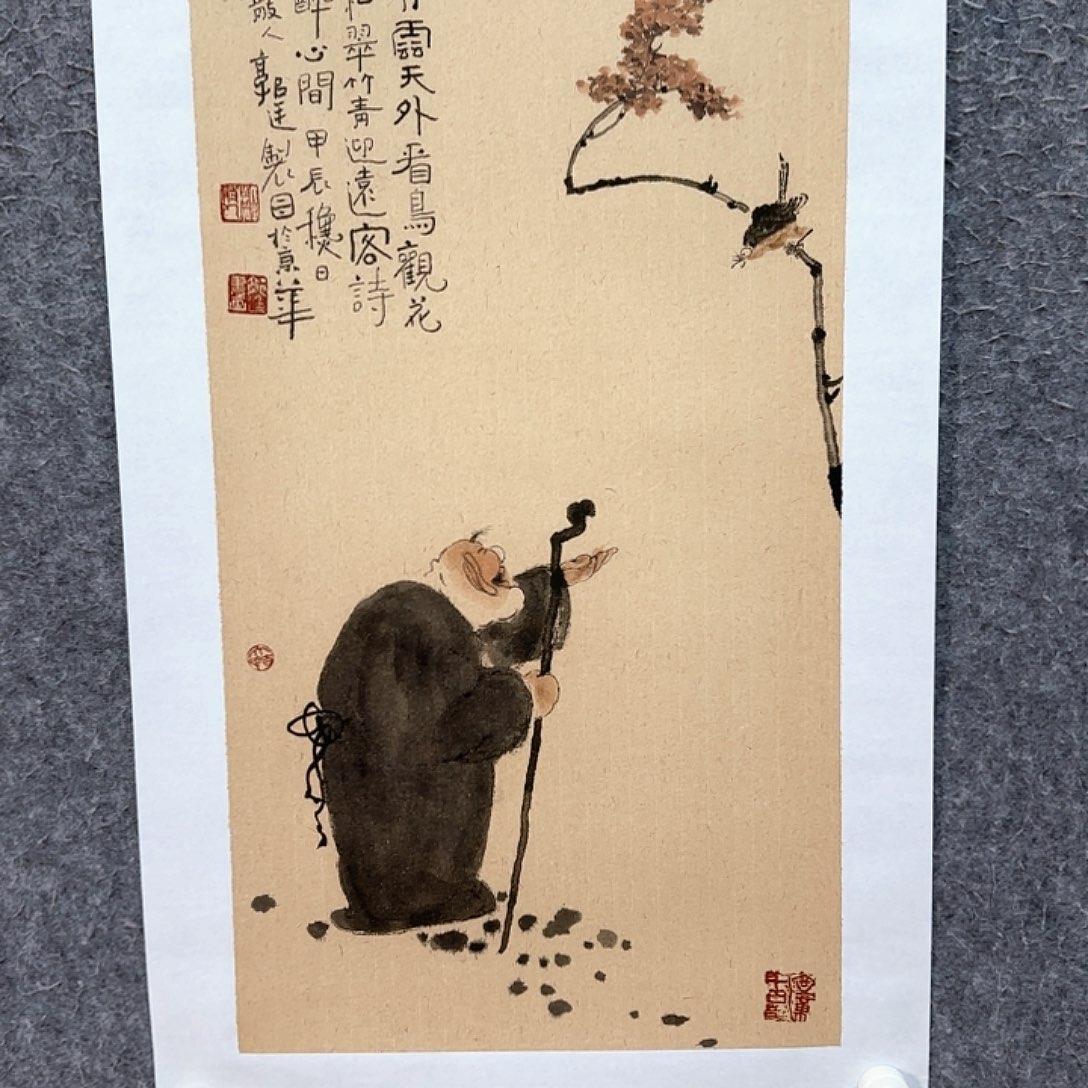 雲天外看鳥觀花
翠竹青迎遠客詩
醉心間甲辰龝日
散人郭製於京華